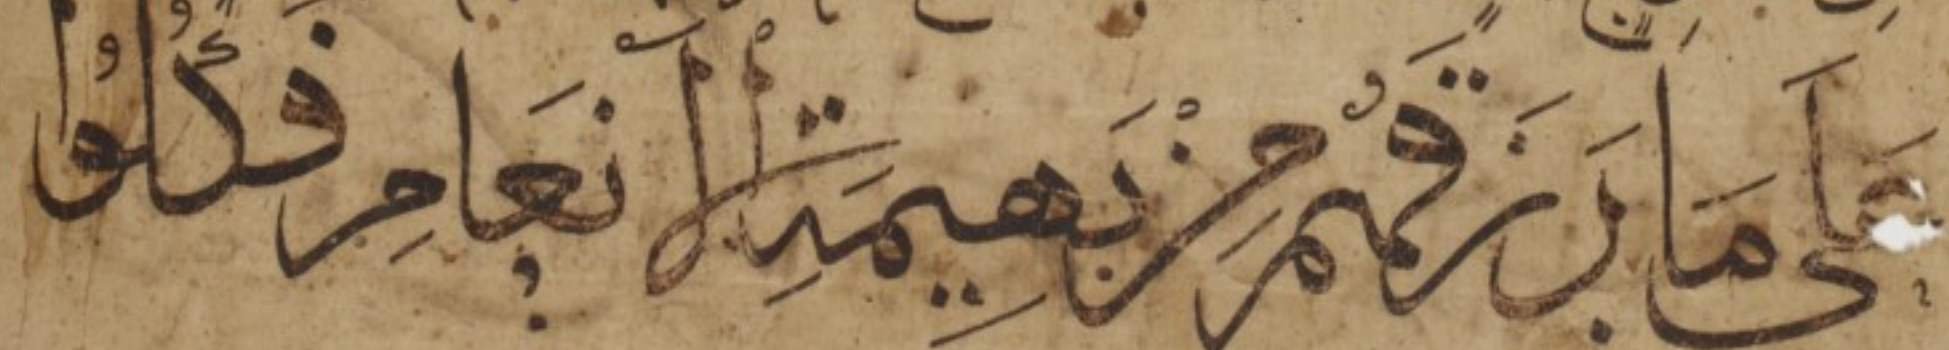 عَلَى مَا رَزَقَهُمْ مِنْ بَهِيمَةِ الْأَنْعَامِ فَكُلُوا